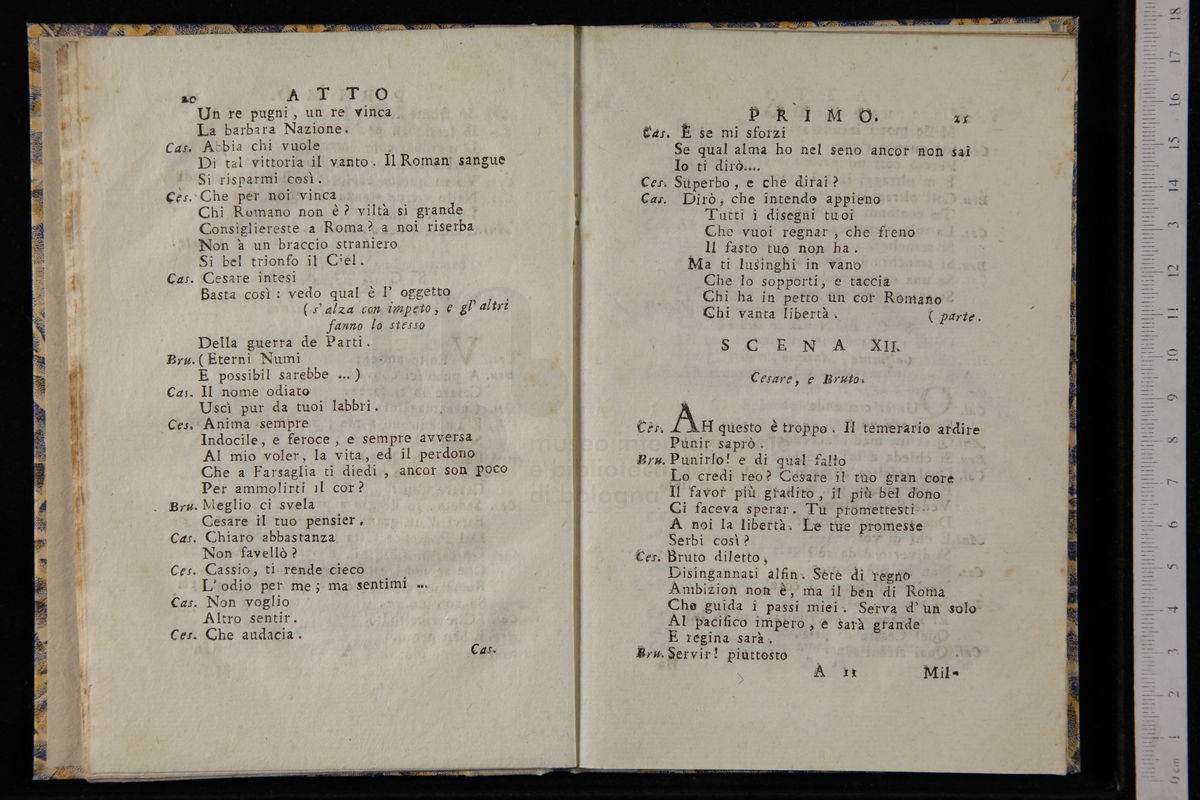 20 ATTO
Un re pugni, un re vinca
La barbara Nazione.
Cas. Abbia chi vuole
Di tal vittoria il vanto. Il Roman sangue
Si risparmi così.
Ces. Che per noi vinca
Chi Romano non è? viltà si grande
Consigliereste a Roma? a noi riserba
Non à un braccio straniero
Si bel trionfo il Ciel.
Cas. Cesare intesi
Basta così: vedo qual è l' oggetto
( s' alza con impeto, e gl' altri
fanno lo stesso
Della guerra de Parti.
Bru. (Eterni Numi
E possibil sarebbe ...)
Cas. Il nome odiato
Uscì pur da tuoi labbri.
Ces. Anima sempre
Indocile, e feroce, e sempre avversa
Al mio voler, la vita, ed il perdono
Che a Farsaglia ti diedi, ancor son poco
Per ammolirti il cor?
Bru. Meglio ci svela
Cesare il tuo pensier.
Cas. Chiaro abbastanza
Non favellò?
Ces. Cassio, ti rende cieco
L' odio per me; ma sentimi ...
Cas. Non voglio
Altro sentir.
Ces. Che audacia.
Cas.
PRIMO. 21
Cas. E se mi sforzi
Se qual alma ho nel seno ancor non sai
Io ti dirò....
Ces. Superbo, e che dirai?
Cas. Dirò, che intendo appieno
Tutti i disegni tuoi
Che vuoi regnar, che freno
Il fasto tuo non ha.
Ma ti lusinghi in vano
Che lo sopporti, e taccia
Chi ha in petto un cor Romano
Chi vanta libertà. ( parte.
SCENA XII.
Cesare, e Bruto.
Ces. AH questo è troppo. Il temerario ardire
Punir saprò.
Bru. Punirlo! e di qual fallo
Lo credi reo? Cesare il tuo gran core
Il favor più gradito, il più bel dono
Ci faceva sperar. Tu promettesti
A noi la libertà. Le tue promesse
Serbi così?
Ces. Bruto diletto,
Disingannati alfin. Sete di regno
Ambizion non è, ma il ben di Roma
Che guida i passi miei. Serva d' un solo
Al pacifico impero, e sarà grande
E regina sarà.
Bru. Servir! piuttosto
A 11 Mil-